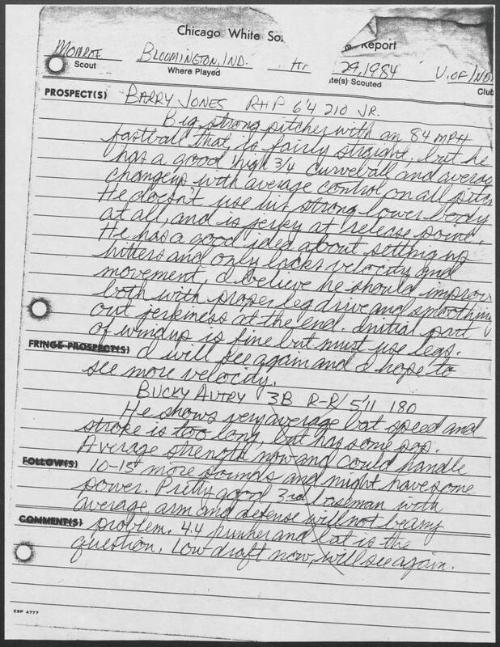 Chicago White So
Report
Monroe
Bloomington, IND.
29, 1984
U. of IND
Scout
Where Played
te(s) Scouted
Club
PROSPECT(S) BARRY JONES RHP 6'4 210 JR.
Big strong pitcher with an 84 MPH
fastball that is fairly straight, but he
has a good high 3/4 curveball and averag
changeup with average control on all pitch
He doesn't use his strong lower body
at all and is jerky at release point.
He has a good idea about setting up
hitters and only lacks velocity and
movement. I believe he should improv
both with proper leg drive and smoothing
out jerkiness at the end. Initial part
of windup is fine but must use legs.
FRINGE PROSPECT(S) I will see again and I hope to
see more velocity.
BUCKY AUTRY 3B R-R/ 5'11 180
He shows very average bat speed and
stroke is too long, but has some pop.
Average strength now and could handle
FOLLOW(S) 10-15 more pounds and might have some
power. Pretty good 3rd baseman with
average arm and defense will not be any
COMMENT(S) problem. 4.4 runner and bat is the
question. Low draft now, will see again.